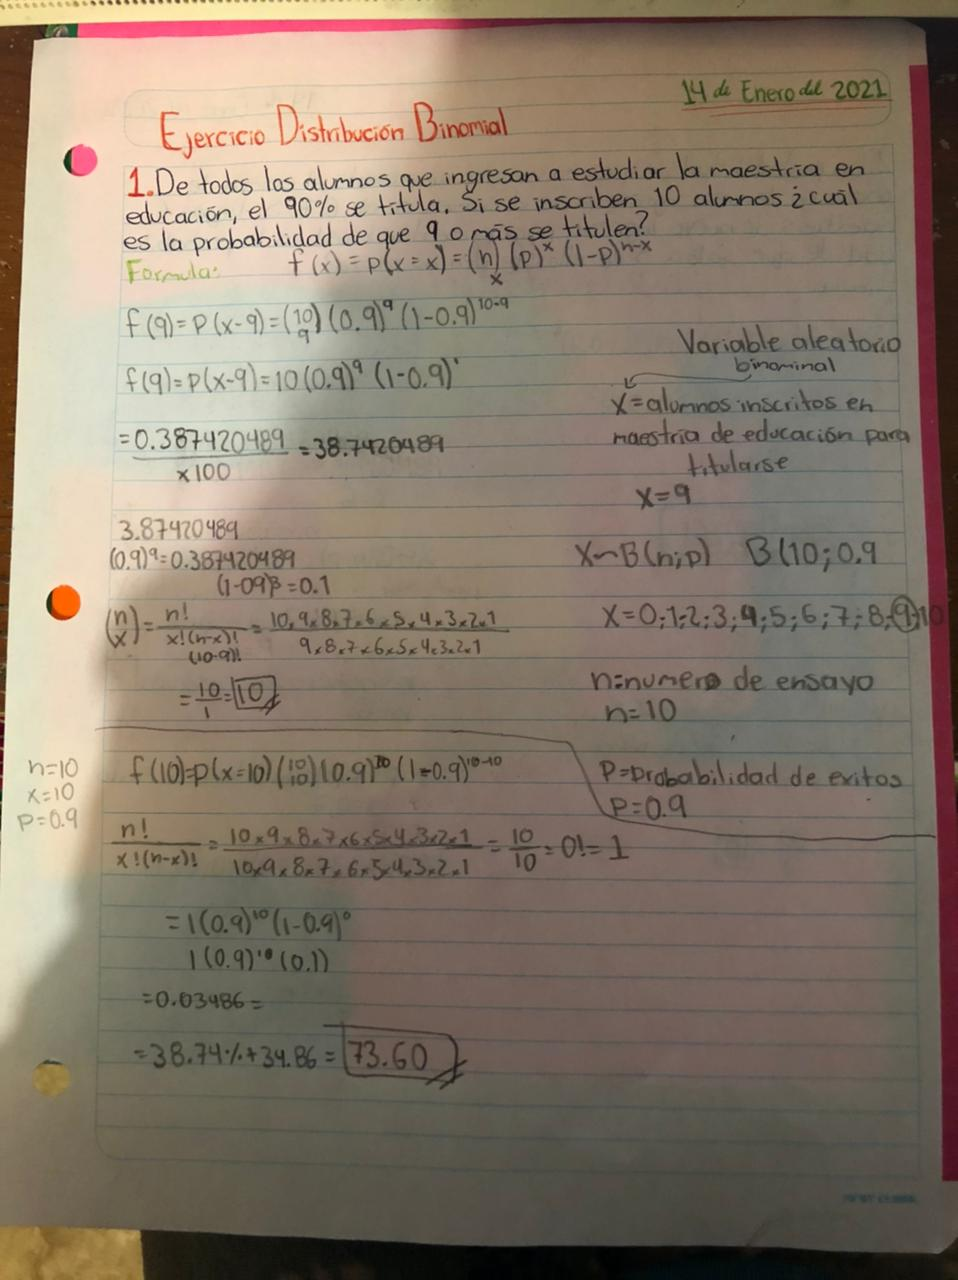 14 de Enero del 2021
Ejercicio Distribución Binomial
1. De todos los alumnos que ingresan a estudiar la maestria en
educación, el 90% se titula. Si se inscriben 10 alumnos ¿cuál
es la probabilidad de que 9 o más se titulen?
Formula: f(x)=p(x=x)=(n x)(p)^x (1-p)^n-x
f(9)=P(x-9)=(10 9)(0.9)^9 (1-0.9)^10-9
f(9)=P(x-9)=10(0.9)^9 (1-0.9)^1
=0.387420489 =38.7420489
x100
3.87420489
(0.9)^9=0.387420489
(1-09)=0.1
(n x)= n! / x!(n-x)! = 10.9x8x7x6x5x4x3x2x1 / 9x8x7x6x5x4x3x2x1
(10-9)!
=10/1=10
Variable aleatorio
binominal
X=alumnos inscritos en
maestria de educación para
titularse
X=9
X~B(n;p) B(10;0.9
X=0;1;2;3;4;5;6;7;8;9;10
n=numero de ensayo
n=10
P=probabilidad de exitos
P=0.9
n=10
x=10
p=0.9
f(10)=p(x=10)(10 10)(0.9)^10 (1-0.9)^10-10
n! / x!(n-x)! = 10x9x8x7x6x5x4x3x2x1 / 10x9x8x7x6x5x4x3x2x1 = 10/10 = 0!=1
=1(0.9)^10 (1-0.9)^0
1(0.9)^10 (0.1)
=0.03486=
=38.74%+34.86=73.60